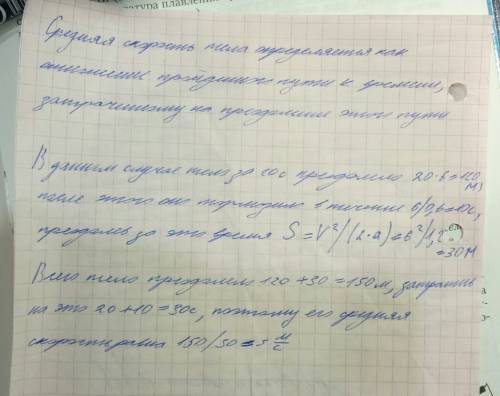 ратура плавлени
Средняя скорость тела определяется как
отношение пройденного пути к времени,
затраченному на преодоление этого пути
В данном случае тело за преодолело 20·6=120 м,
после этого оно тормозило в течение 6/0,6=10с,
преодолев за это время S=V²/(2·a)=6²/1,2
=30м
Всего тело преодолело 120+30=150м, затратив
на это 20+10=30с, поэтому его средняя
скорость равна 150/30=5 м/с